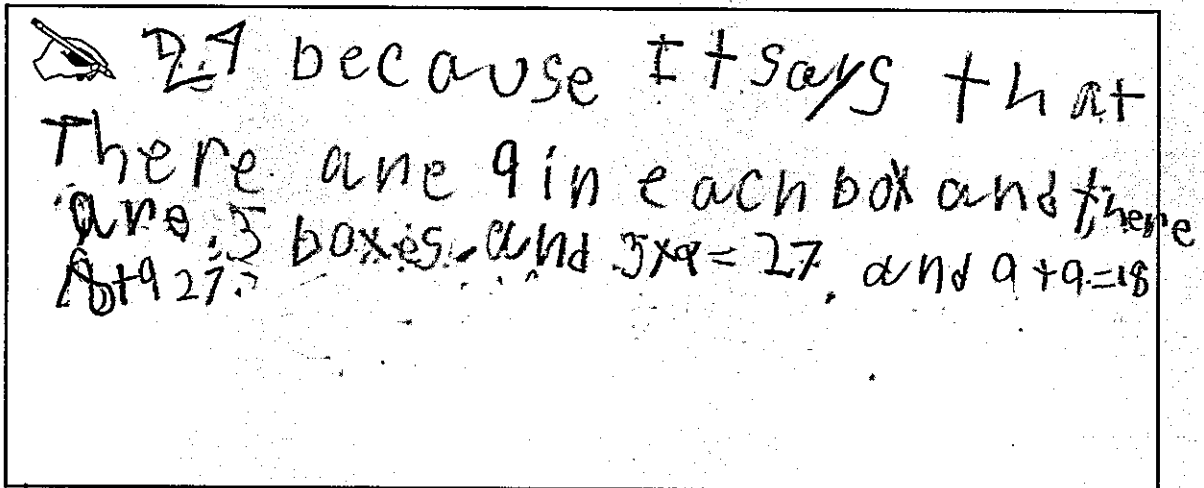 27 because It says that
There are 9 in each box and there
are 3 boxes. and 3x9=27. and 9+9=18
18+9 27.